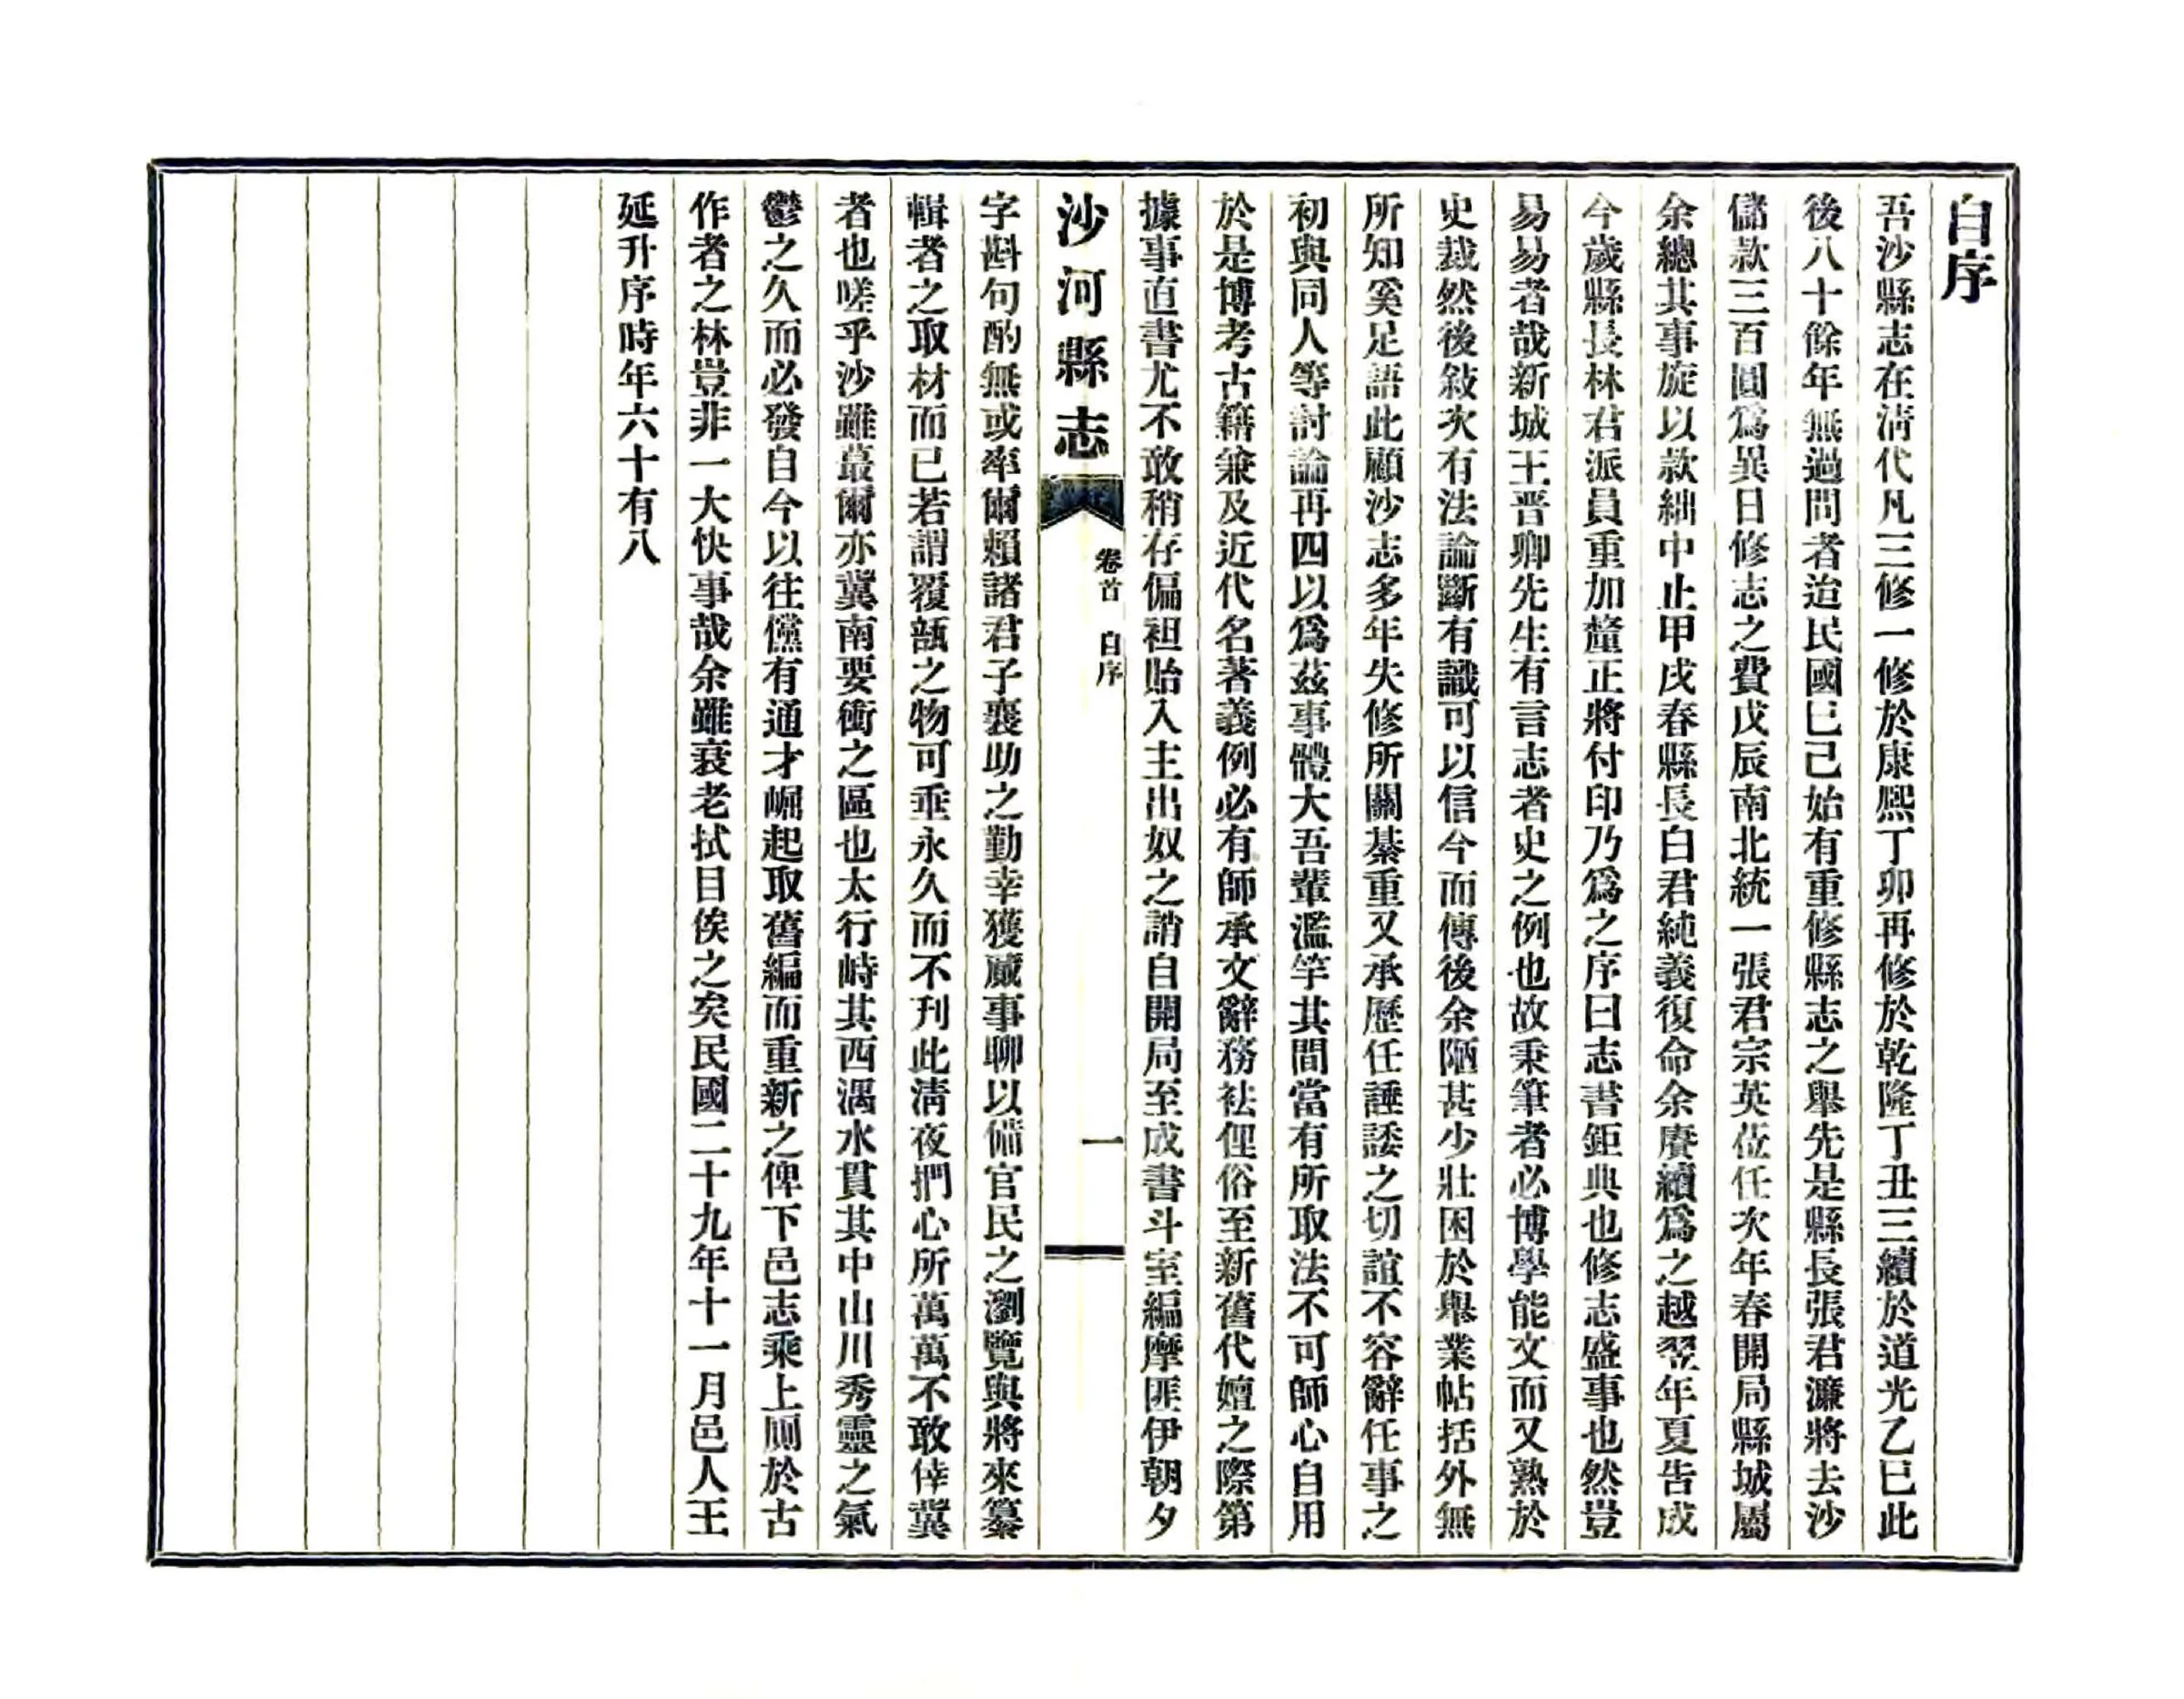 自序
吾沙縣志在清代凡三修一修於康熙丁卯再修於乾隆丁丑三續於道光乙巳此
後八十餘年無過問者迨民國巳己始有重修縣志之舉先是縣長張君濂將去沙
儲款三百圓爲異日修志之費戊辰南北統一張君宗英蒞任次年春開局縣城屬
余總其事旋以款絀中止甲戌春縣長白君純義復命余賡續爲之越翌年夏告成
今歲縣長林君派員重加釐正將付印乃爲之序曰志書鉅典也修志盛事也然豈
易易者哉新城王晋卿先生有言志者史之例也故秉筆者必博學能文而又熟於
史裁然後敍次有法論斷有識可以信今而傳後余陋甚少壯困於舉業帖括外無
所知奚足語此顧沙志多年失修所關綦重又承歷任諈諉之切誼不容辭任事之
初與同人等討論再四以爲茲事體大吾輩濫竽其間當有所取法不可師心自用
於是博考古籍兼及近代名著義例必有師承文辭務祛俚俗至新舊代嬗之際第
據事直書尤不敢稍存偏袒貽入主出奴之誚自開局至成書斗室編摩匪伊朝夕
沙河縣志
卷首 自序
一
字斟句酌無或率爾賴諸君子襄助之勤幸獲蕆事聊以備官民之瀏覽與將來纂
輯者之取材而已若謂覆瓿之物可垂永久而不刊此清夜捫心所萬萬不敢倖冀
者也嗟乎沙雖蕞爾亦冀南要衝之區也太行峙其西湡水貫其中山川秀靈之氣
鬱之久而必發自今以往儻有通才崛起取舊編而重新之俾下邑志乘上厠於古
作者之林豈非一大快事哉余雖衰老拭目俟之矣民國二十九年十一月邑人王
延升序時年六十有八